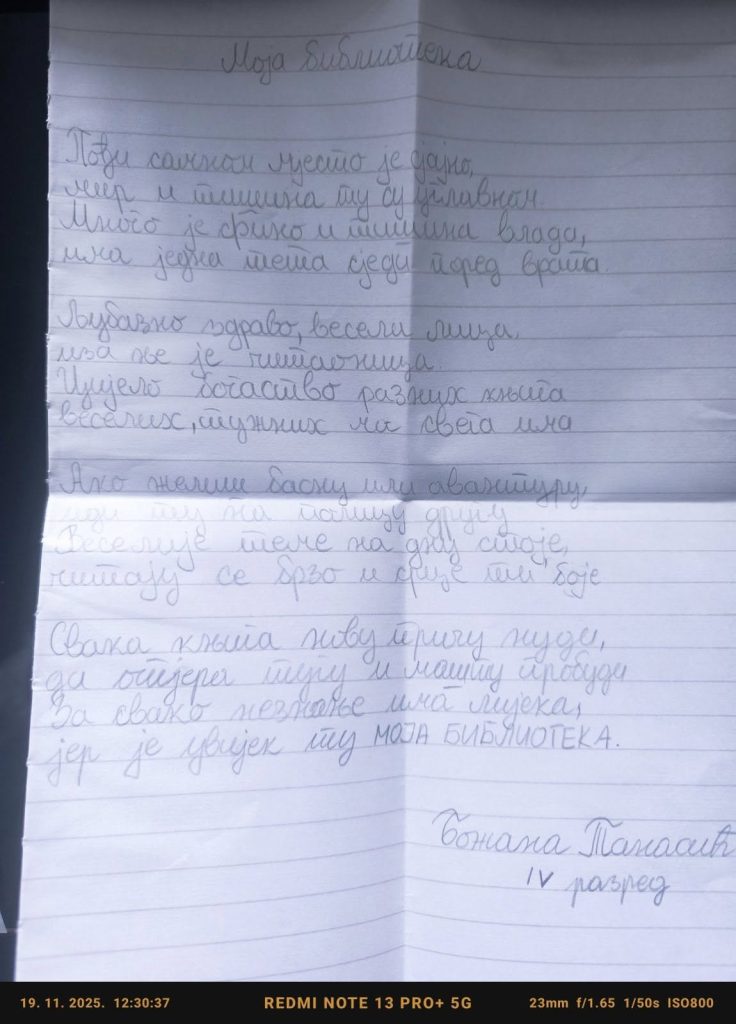 Моја библиотека
Пођи са мном мјесто је сјајно,
мир и тишина ту су углавном.
Много је фино и тишина влада,
има једна тета сједи поред врата.
Љубазно здраво, весели лица,
иза ње је читаоница.
Цијело богаство разних књига
веселих, тужних ма свега има
Ако желиш басну или авантуру,
иди ту на полицу другу
Веселије теме на дну стоје,
читају се брзо и срце ти боје
Свака књига нову причу нуди,
да отјера тугу и машту пробуди
За свако незнање има лијека,
јер је увијек ту МОЈА БИБЛИОТЕКА.
Божана Танасић
IV разред
19. 11. 2025. 12:30:37 REDMI NOTE 13 PRO+ 5G 23mm f/1.65 1/50s ISO800